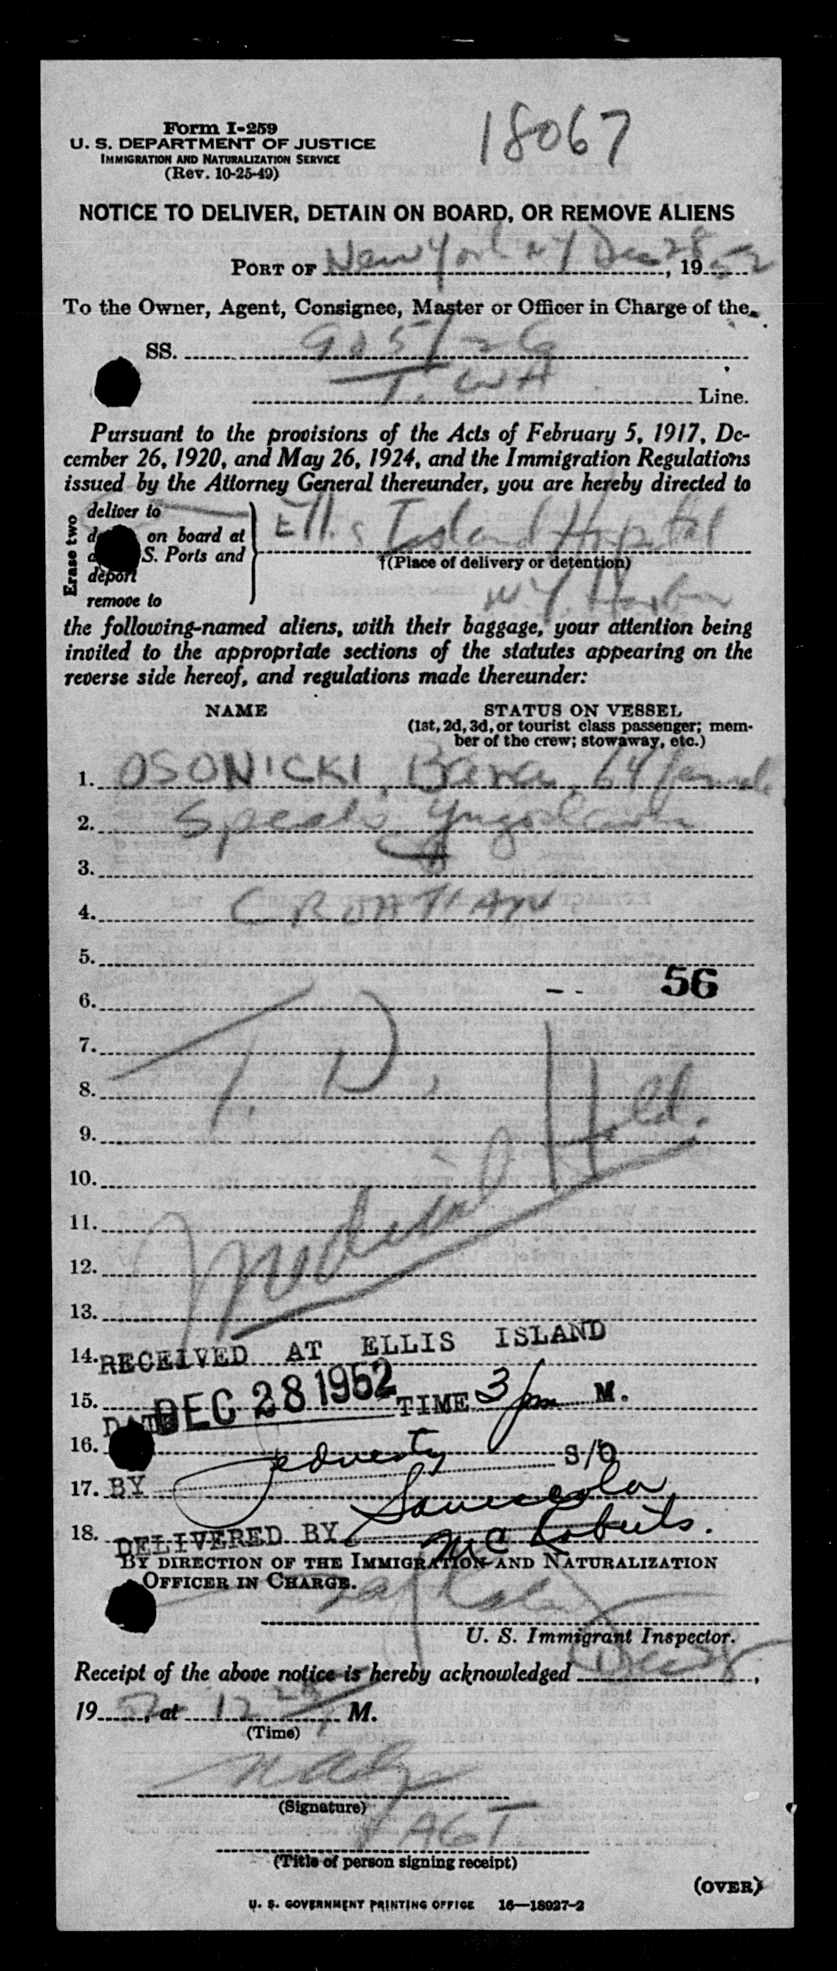 Form I-259
18067
U. S. DEPARTMENT OF JUSTICE
IMMIGRATION AND NATURALIZATION SERVICE
(Rev. 10-25-49)
NOTICE TO DELIVER, DETAIN ON BOARD, OR REMOVE ALIENS
PORT OF New York NY Dec 28, 1952
To the Owner, Agent, Consignee, Master or Officer in Charge of the
SS. 905/26
T.WA Line.
Pursuant to the provisions of the Acts of February 5, 1917, De-
cember 26, 1920, and May 26, 1924, and the Immigration Regulations
issued by the Attorney General thereunder, you are hereby directed to
Erase two
deliver to
on board at
S. Ports and
deport
remove to
Ellis Island Hospital
†(Place of delivery or detention)
N.Y. Harbor
the following-named aliens, with their baggage, your attention being
invited to the appropriate sections of the statutes appearing on the
reverse side hereof, and regulations made thereunder:
NAME STATUS ON VESSEL
(1st, 2d, 3d, or tourist class passenger; mem-
ber of the crew; stowaway, etc.)
1. OSONICKI, Bara, 64 female
2. Speaks Yugoslavian
3.
4. CROATIAN
5.
56
6.
7.
T. D.
8.
Hold.
9.
10.
Medical
11.
12.
13.
RECEIVED AT ELLIS ISLAND
14.
15. DATE DEC 28 1952 TIME 3 pm M.
16. S/O
17. BY
18. DELIVERED BY
Mc Roberts.
BY DIRECTION OF THE IMMIGRATION AND NATURALIZATION
OFFICER IN CHARGE.
U. S. Immigrant Inspector.
Receipt of the above notice is hereby acknowledged Dec 28,
1952, at 12 M.
(Time)
(Signature)
AGT
(Title of person signing receipt)
(OVER)
U. S. GOVERNMENT PRINTING OFFICE 16—18927-2